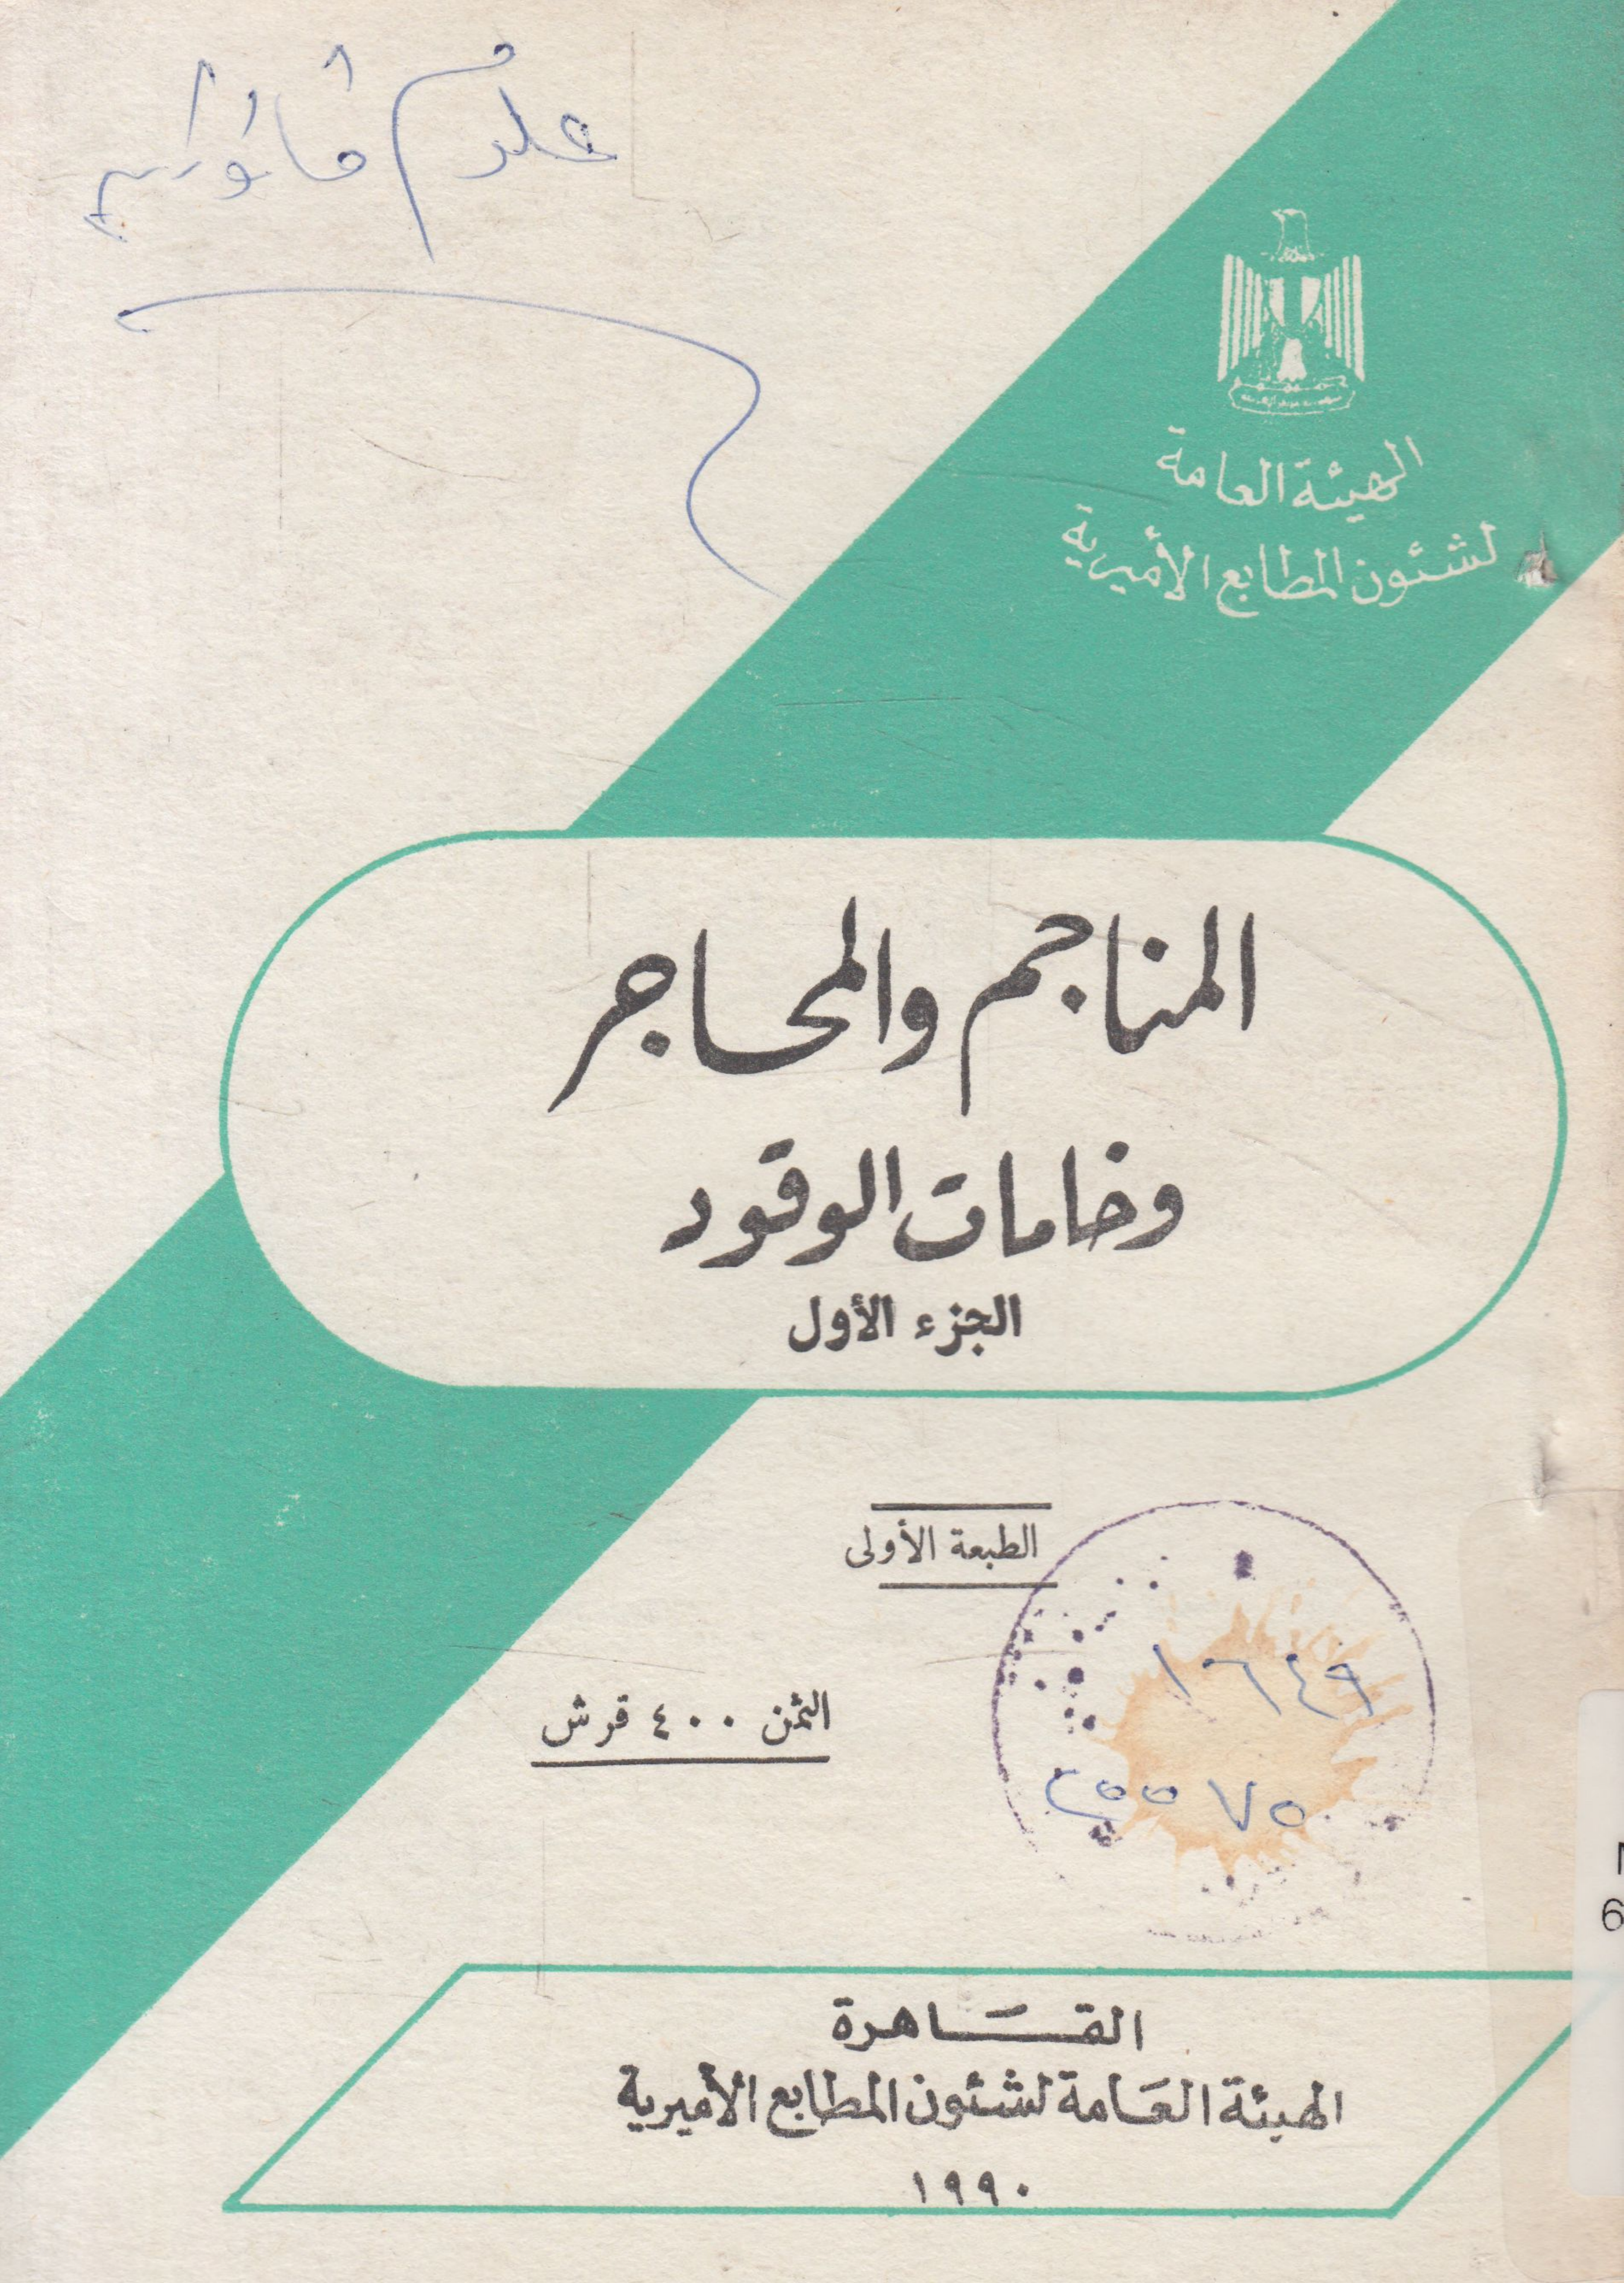 علوم قانونية
الهيئة العامة
لشئون المطابع الأميرية
المناجم والمحاجر
وخامات الوقود
الجزء الأول
الطبعة الأولى
١٦٤٩
الثمن ٤٠٠ قرش
القاهرة
الهيئة العامة لشئون المطابع الأميرية
١٩٩٠